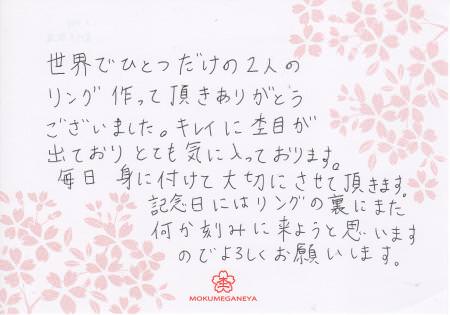 世界でひとつだけの2人の
リング作って頂きありがとう
ございました。キレイに杢目が
出ておりとても気に入っております。
毎日 身に付けて大切にさせて頂きます。
記念日にはリングの裏にまた
何か刻みに来ようと思います
のでよろしくお願いします。
MOKUMEGANEYA